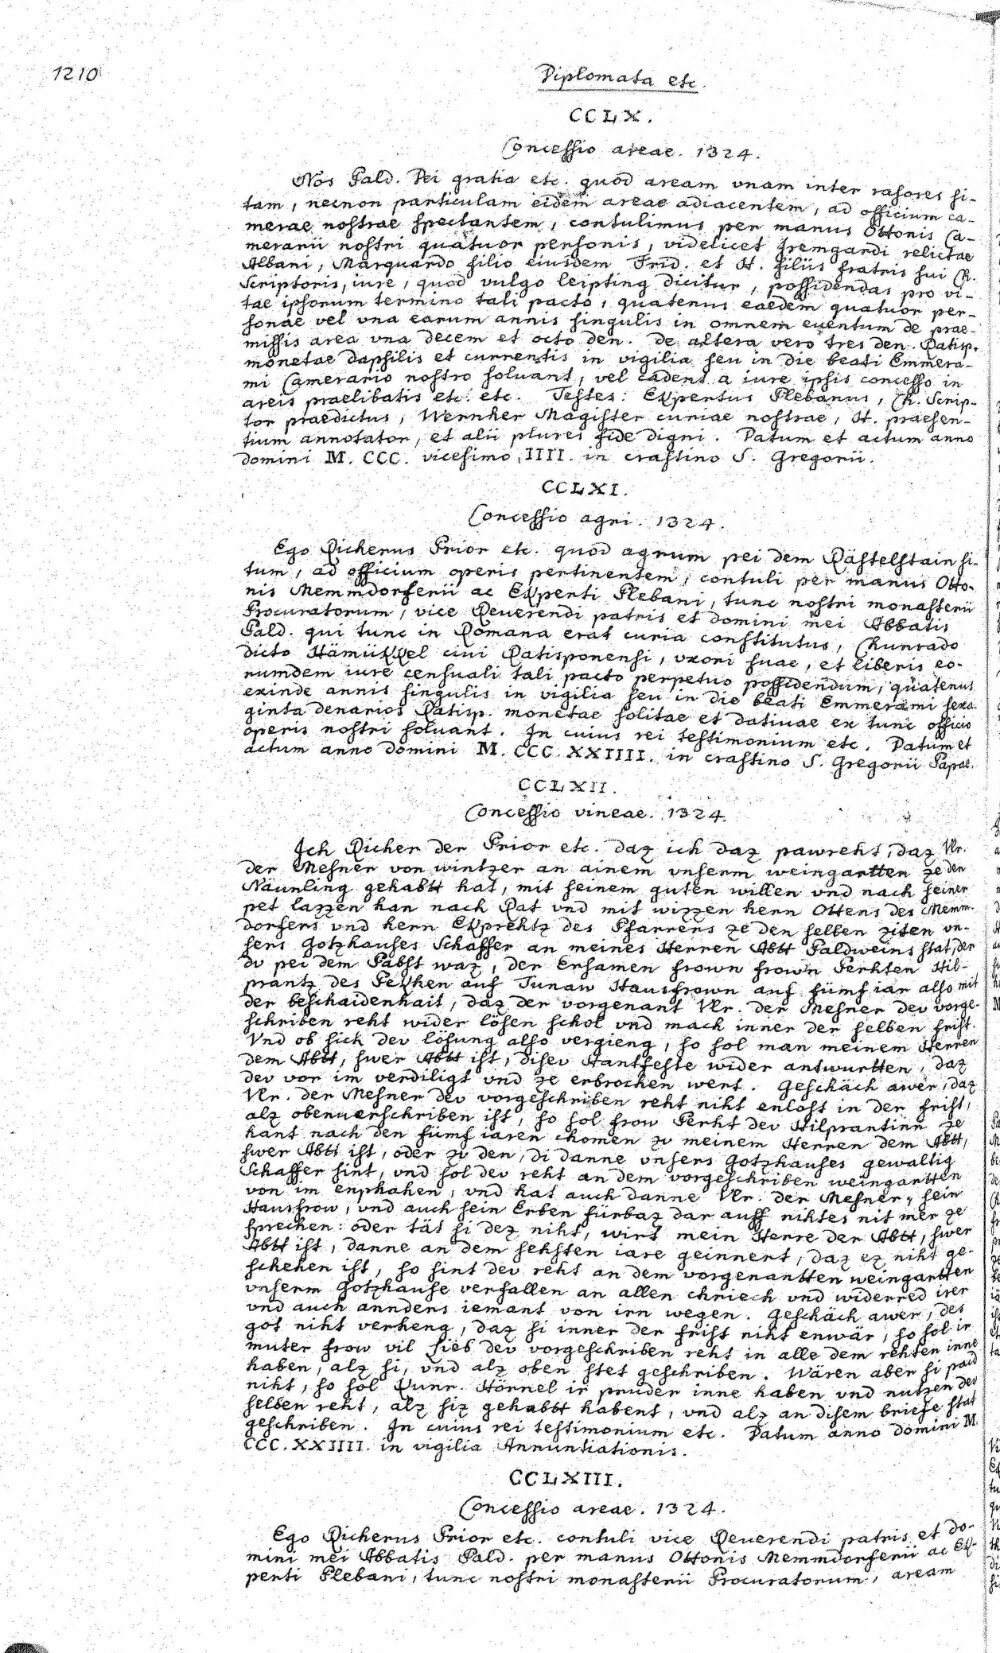 1210
Diplomata etc.
CCLX.
Concessio areae. 1324.
Nos Pald. Dei gratia etc. quod aream vnam inter rasores si-
tam, necnon particulam eidem areae adiacentem, ad officium ca-
merae nostrae spectantem, contulimus per manus Ottonis Ca-
merarii nostri quatuor personis, videlicet Iremgardi relictae
Albani, Marquardo filio eiusdem Frid. et H. filiis fratris sui Ch.
Scriptoris, iure, quod vulgo leipting dicitur, possidendas pro vi-
tae ipsorum termino tali pacto, quatenus eaedem quatuor per-
sonae vel vna earum annis singulis in omnem euentum de prae-
missis area vna decem et octo den. de altera vero tres den. Ratisp.
monetae dapsilis et currentis in vigilia seu in die beati Emmera-
mi Camerario nostro soluant, vel cadent a iure ipsis concesso in
areis praelibatis etc. etc. Testes: Ekpertus Plebanus, Ch. Scrip-
tor praedictus, Wernher Magister curiae nostrae, H. praesen-
tium annotator, et alii plures fide digni. Datum et actum anno
domini M. CCC. vicesimo IIII. in crastino S. Gregorii.
CCLXI.
Concessio agri. 1324.
Ego Richerus Prior etc. quod agrum pei dem Rästelstain si-
tum, ad officium operis pertinentem, contuli per manus Otto-
nis Memmdorferii ac Ekperti Plebani, tunc nostri monasterii
Procuratorum, vice Reuerendi patris et domini mei Abbatis
Pald. qui tunc in Romana erat curia constitutus, Chunrado
dicto Hämükkel ciui Ratisponensi, vxori suae, et liberis eo-
rumdem iure censuali tali pacto perpetuo possidendum, quatenus
exinde annis singulis in vigilia seu in die beati Emmerami sexa
ginta denarios Ratisp. monetae solitae et datiuae ex tunc officio
operis nostri soluant. In cuius rei testimonium etc. Datum et
actum anno domini M. CCC. XXIIII. in crastino S. Gregorii Papae.
CCLXII.
Concessio vineae. 1324.
Ich Richer der Prior etc. daz ich daz pawreht, daz Vlr.
der Mesner von wintzer an ainem vnserm weingartten ze den
Näunling gehabtt hat, mit seinem guten willen vnd nach seiner
pet lazzen han nach Rat vnd mit wizzen hern Ottens des Memm-
dorfers vnd hern Ekprehtz des Pfarrers ze den selben ziten vn-
sers Gotzhauses Schaffer an meines Herren Abtt Paldweins stat, der
dv pei dem Pabst waz, der Ersamen frown frown Perhten Hil-
prantz des Pekhen auf Tunaw Hausfrown auf fümf iar also mit
der beschaidenhait, daz der vorgenant Vlr. der Mesner dev vorge-
schriben reht wider lösen schol vnd mach inner der selben frist.
Vnd ob sich dev lösung also vergieng, so sol man meinem Herren
dem Abtt, swer Abtt ist, diser Hantfeste wider antwurtten, daz
dev vor im verdiligt vnd ze erbrochen wert. Geschäch awer, daz
Vlr. der Mesner dev vorgeschriben reht niht erlost in der frist,
alz obenverschriben ist, so sol frow Perht dev Hilprantinn ze
hant nach den fümf iaren chomen zv meinem Herren dem Abtt,
swer Abtt ist, oder zv den, di danne vnsers Gotzhauses gewaltig
Schaffer sint, vnd sol dev reht an dem vorgeschriben weingartten
von im enphahen, vnd hat auch danne Vlr. der Mesner, sein
Hausfrow, vnd auch sein Erben fürbaz dar auff nihtes nit mer ze
sprechen: oder tät si dez niht, wirt mein Herre der Abtt, swer
Abtt ist, danne an dem sehsten iare geinnert, daz ez niht ge-
schehen ist, so sint dev reht an dem vorgenantten weingartten
vnserm Gotzhause verfallen an allen chriech vnd widerred irer
vnd auch anders iemant von irn wegen. Geschäch awer, des
got niht verheng, daz si inner der frist niht enwär, so sol ir
muter frow vil lieb dev vorgeschriben reht in alle dem rehten inne
haben, alz si, vnd alz oben stet geschriben. Wären aber si paid
niht, so sol Runr. Hörnel ir pruder inne haben vnd nutzen dev
selben reht, alz siz gehabtt habent, vnd alz an disem briefe stat
geschriben. In cuius rei testimonium etc. Datum anno domini M.
CCC. XXIIII. in vigilia Annuntiationis.
CCLXIII.
Concessio areae. 1324.
Ego Richerus Prior etc. contuli vice Reuerendi patris et do-
mini mei Abbatis Pald. per manus Ottonis Memmdorferii ac Ek-
perti Plebani, tunc nostri monasterii Procuratorum, aream